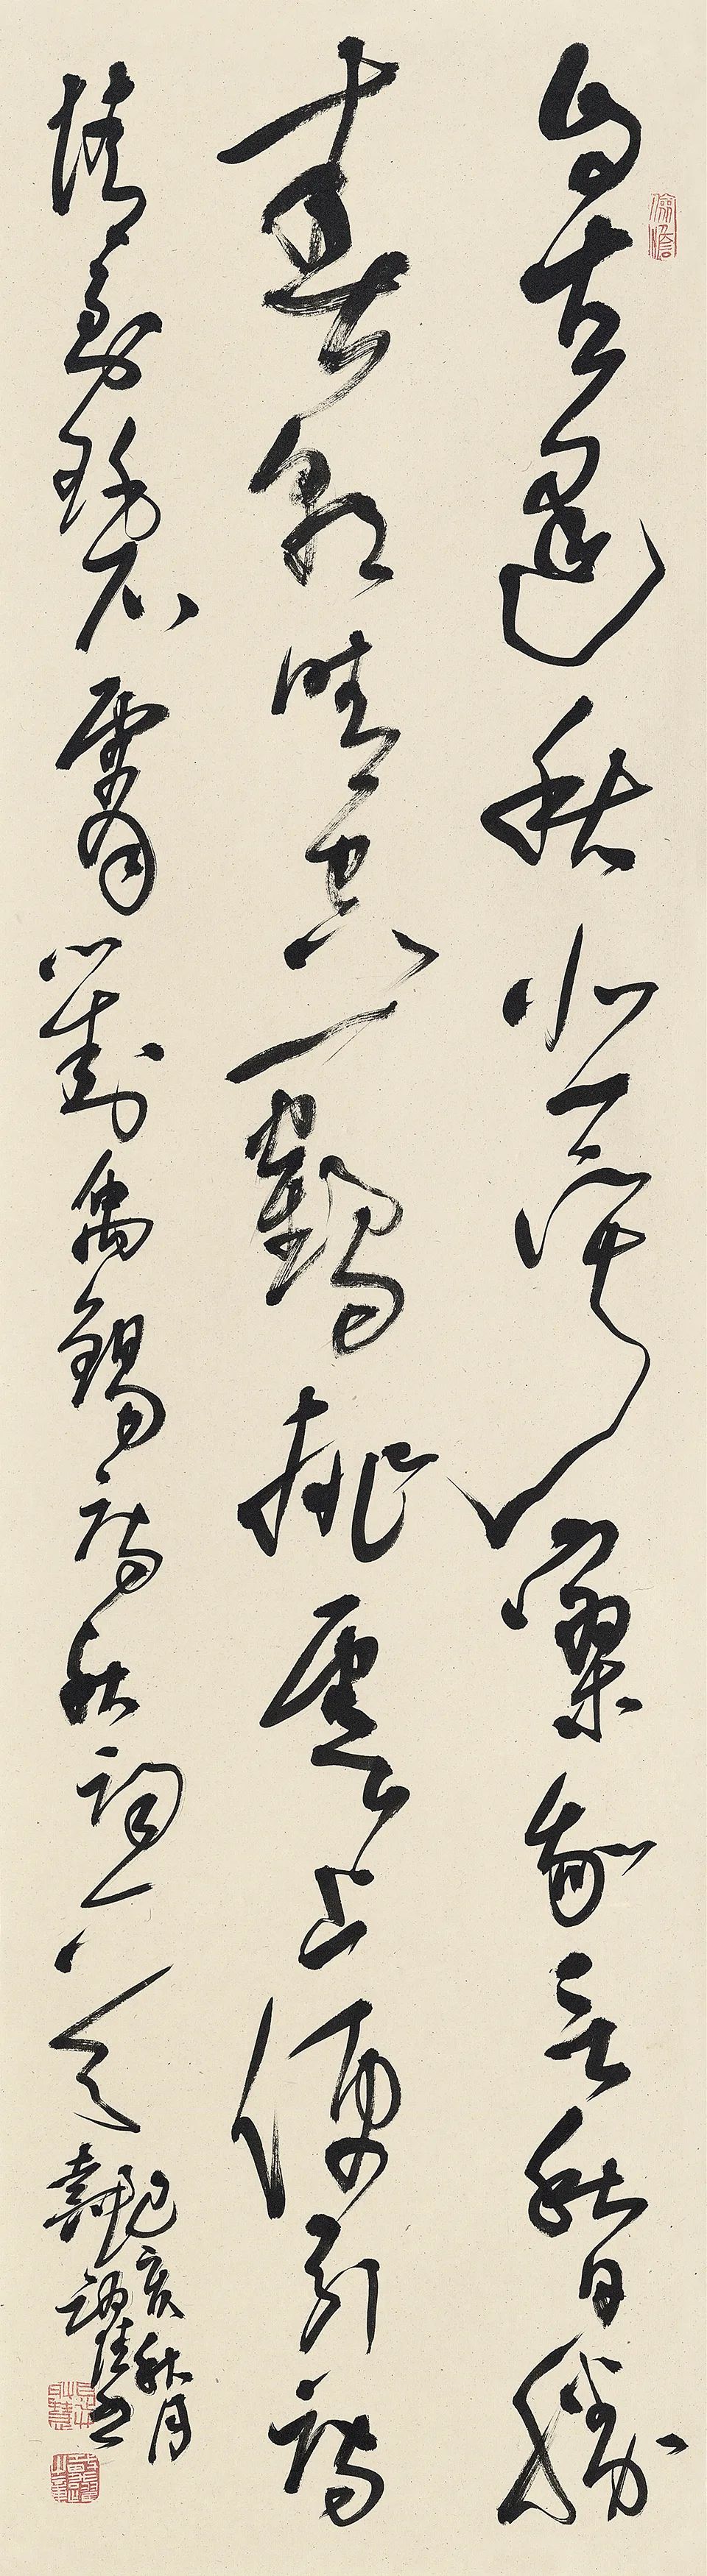 自古逢秋悲寂寥我言秋日勝
春朝晴空一鶴排雲上便引詩
情到碧霄劉禹錫詩秋詞一
己亥秋月